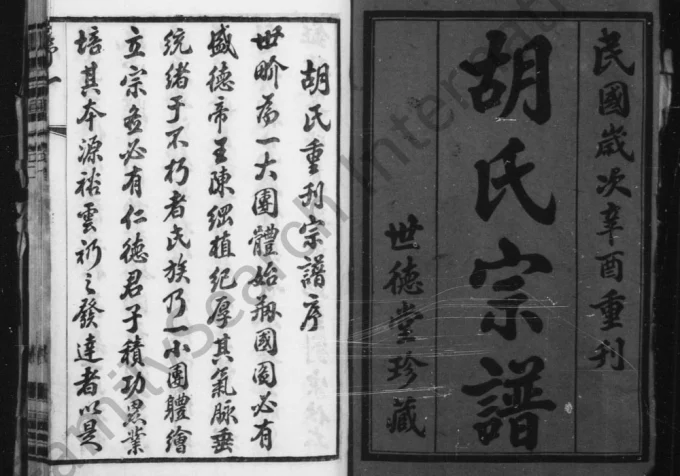 民國歲次辛酉重刊
胡氏宗譜
世德堂珍藏
胡氏重刊宗譜序
世畍為一大團體始剏國圖必有
盛德帝王陳綱植紀厚其氣脉垂
統緒于不朽者氏族乃一小團體繪
立宗盍必有仁德君子積功累業
培其本源裕雲礽之發達者以是
FamilySearch International